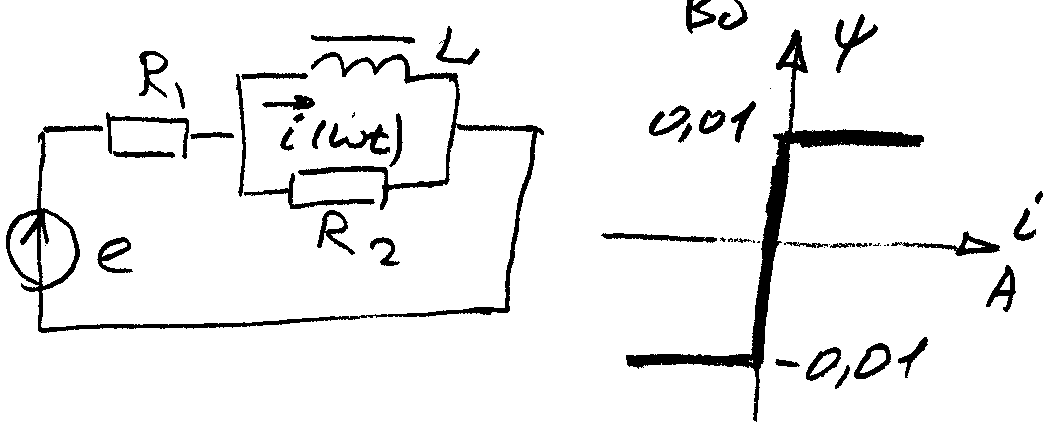 R₁
L
i(ωt)
R₂
e
Вб
ψ
0,01
i
A
-0,01